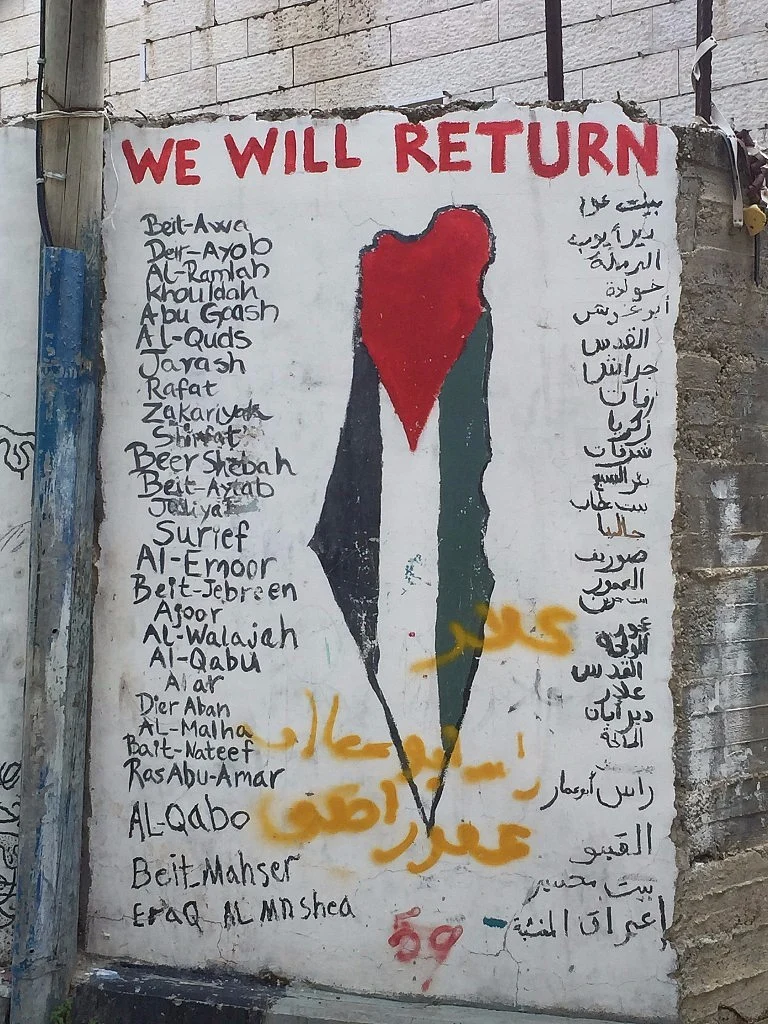 WE WILL RETURN
Beit-Awa
Deir-Ayob
Al-Ramlah
Khouldah
Abu Goash
Al-Quds
Jarash
Rafat
Zakariyah
Beer Shebah
Beit-Aytab
Surief
Al-Emoor
Beit-Jebreen
Ajoor
Al-Walajah
Al-Qabu
Alar
Dier Aban
AL-Malha
Bait-Nateef
Ras Abu-Amar
AL-Qabo
Beit-Mahser
EraQ AL Mnshea
بيت عوا
ديرأيوب
الرملة
خولدة
أبو غوش
القدس
جراش
رفات
زكريا
شرفات
بئر السبع
بيت عطاب
صوريف
العمور
عجور
الولجة
القدس
علار
ديرأبان
المالحة
راس أبو عمار
القبو
بيت محسير
إعراق المنشية
علار
راس ابو عمار
عقور
59